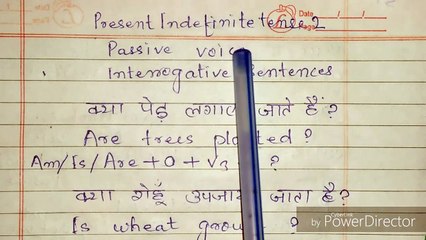 Present Indefinite tense 2
Date / /
Passive voice
Interrogative Sentences
क्या पेड़ लगाए जाते हैं ?
Are trees planted ?
Am/Is/Are + O + V3 ?
क्या गेहूँ उपजाया जाता है ?
Is wheat grown ?
by PowerDirector